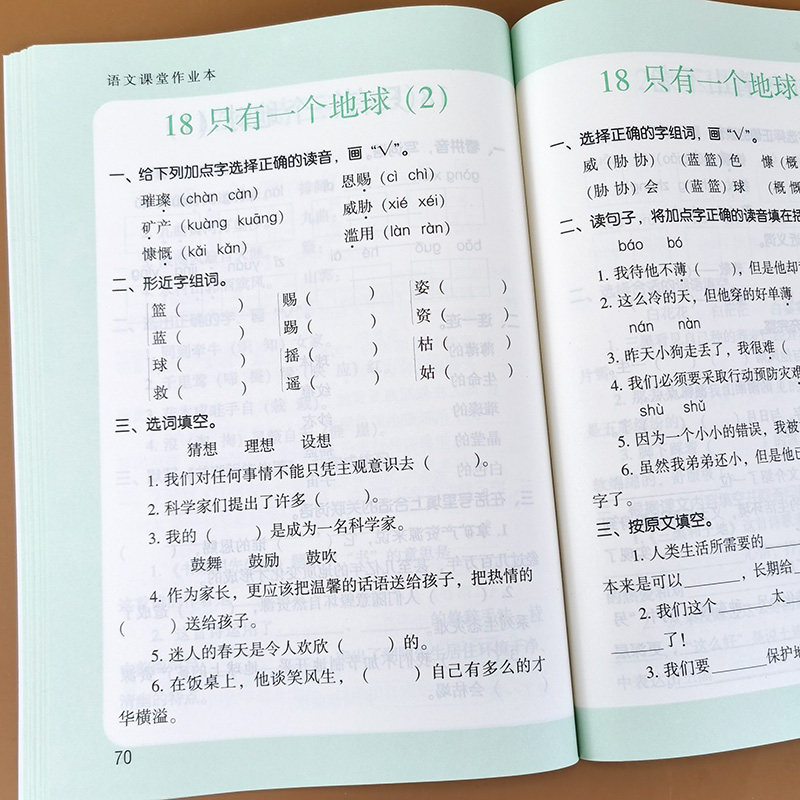 语文课堂作业本
18 只有一个地球（2）
一、给下列加点字选择正确的读音，画“√”。
璀璨（chàn càn） 恩赐（cì chì）
矿产（kuàng kuāng） 威胁（xié xéi）
慷慨（kǎi kǎn） 滥用（làn ràn）
二、形近字组词。
篮（ ） 赐（ ） 姿（ ）
蓝（ ） 踢（ ） 资（ ）
球（ ） 摇（ ） 枯（ ）
救（ ） 遥（ ） 姑（ ）
三、选词填空。
猜想 理想 设想
1. 我们对任何事情不能只凭主观意识去（ ）。
2. 科学家们提出了许多（ ）。
3. 我的（ ）是成为一名科学家。
鼓舞 鼓励 鼓吹
4. 作为家长，更应该把温馨的话语送给孩子，把热情的
（ ）送给孩子。
5. 迷人的春天是令人欢欣（ ）的。
6. 在饭桌上，他谈笑风生，（ ）自己有多么的才
华横溢。
70
18 只有一个地球
一、选择正确的字组词，画“√”。
威（胁 协） （蓝 篮）色 慷（概 慨
（胁 协）会 （蓝 篮）球 （概 慨
二、读句子，将加点字正确的读音填在括
báo bó
1. 我待他不薄（ ），但是他却
2. 这么冷的天，但他穿的好单薄
nán nàn
3. 昨天小狗走丢了，我很难（
4. 我们必须要采取行动预防灾难
shù shǔ
5. 因为一个小小的错误，我被
6. 虽然我弟弟还小，但是他已
字了。
三、按原文填空。
1. 人类生活所需要的______
本来是可以______，长期给______
2. 我们这个______太______
______了！
3. 我们要______保护地